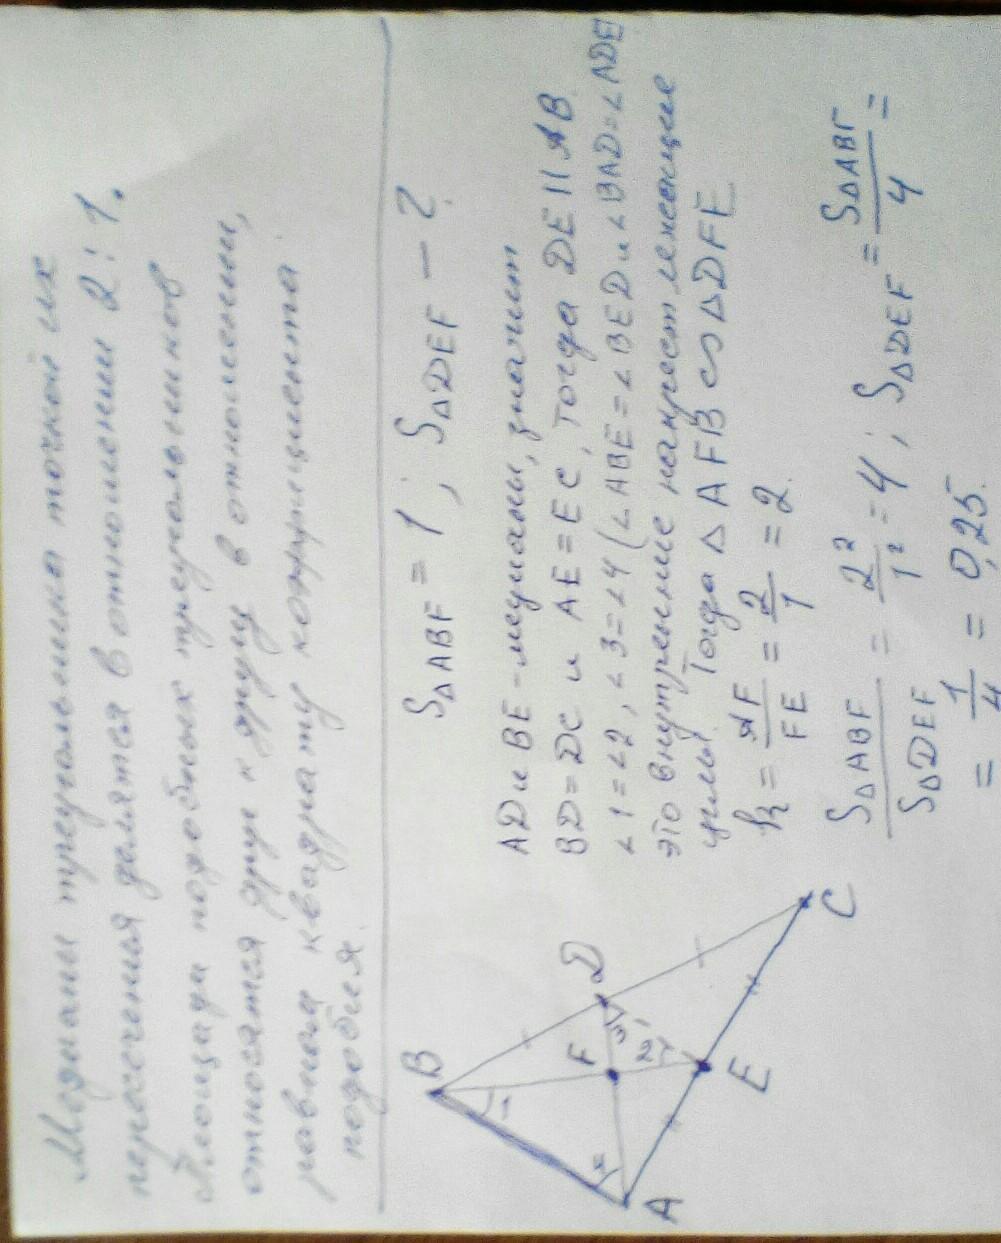 Медианы треугольника точкой их
пересечения делятся в отношении 2:1.
Площади подобных треугольников
относятся друг к другу в отношении,
равном квадрату коэффициента
подобия.
S△ABF = 1 ; S△DEF – ?
AD и BE - медианы, значит
BD = DC и AE = EC, тогда DE || AB.
∠1=∠2, ∠3=∠4 (∠ABE=∠BED и ∠BAD=∠ADE
это внутренние накрест лежащие
углы. Тогда △AFB ∽ △DFE
k = AF/FE = 2/1 = 2.
S△ABF/S△DEF = 2²/1² = 4 ; S△DEF = S△ABF/4 =
= 1/4 = 0,25.
B
D
F
3
2
1
4
A
E
C